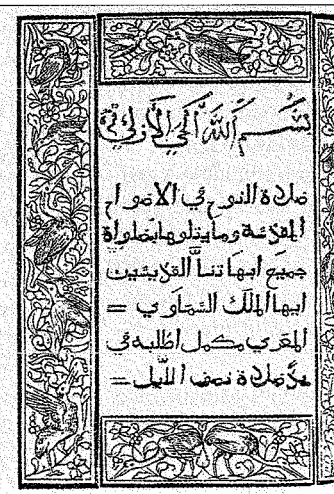 بسم اللّه الحي الأزلي
صلاة النوم في الاصوام
المقدسة وما يتلوها بصلواة
جميع ابهاتنا القديسين
ايها الملك السماوي =
المعزي مكمل اطلبه في
صلاة نصف الليل =